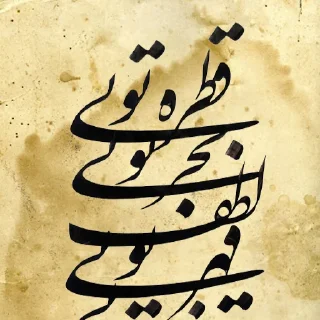 قطره تویی
بحر تویی
لطف تویی
قهر تویی